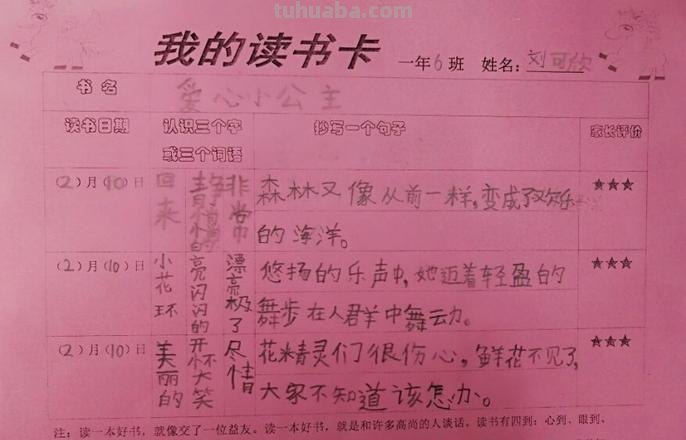 tuhuaba.com
我的读书卡
一年6班 姓名:刘可欣
书名 爱心小公主
读书日期 认识三个字或三个词语 抄写一个句子 家长评价
(2)月(10)日 回来 静悄悄的 非常 森林又像从前一样,变成了欢乐的海洋。 ★★★
(2)月(10)日 小花环 亮闪闪的 漂亮极了 悠扬的乐声中,她迈着轻盈的舞步在人群羊中舞云力。 ★★★
(2)月(10)日 美丽的 开怀大笑 尽情 花精灵们很伤心,鲜花不见了,大家不知道该怎办。 ★★★
注:读一本好书,就像交了一位益友。读一本好书,就是和许多高尚的人谈话,读书有四到:心到、眼到、